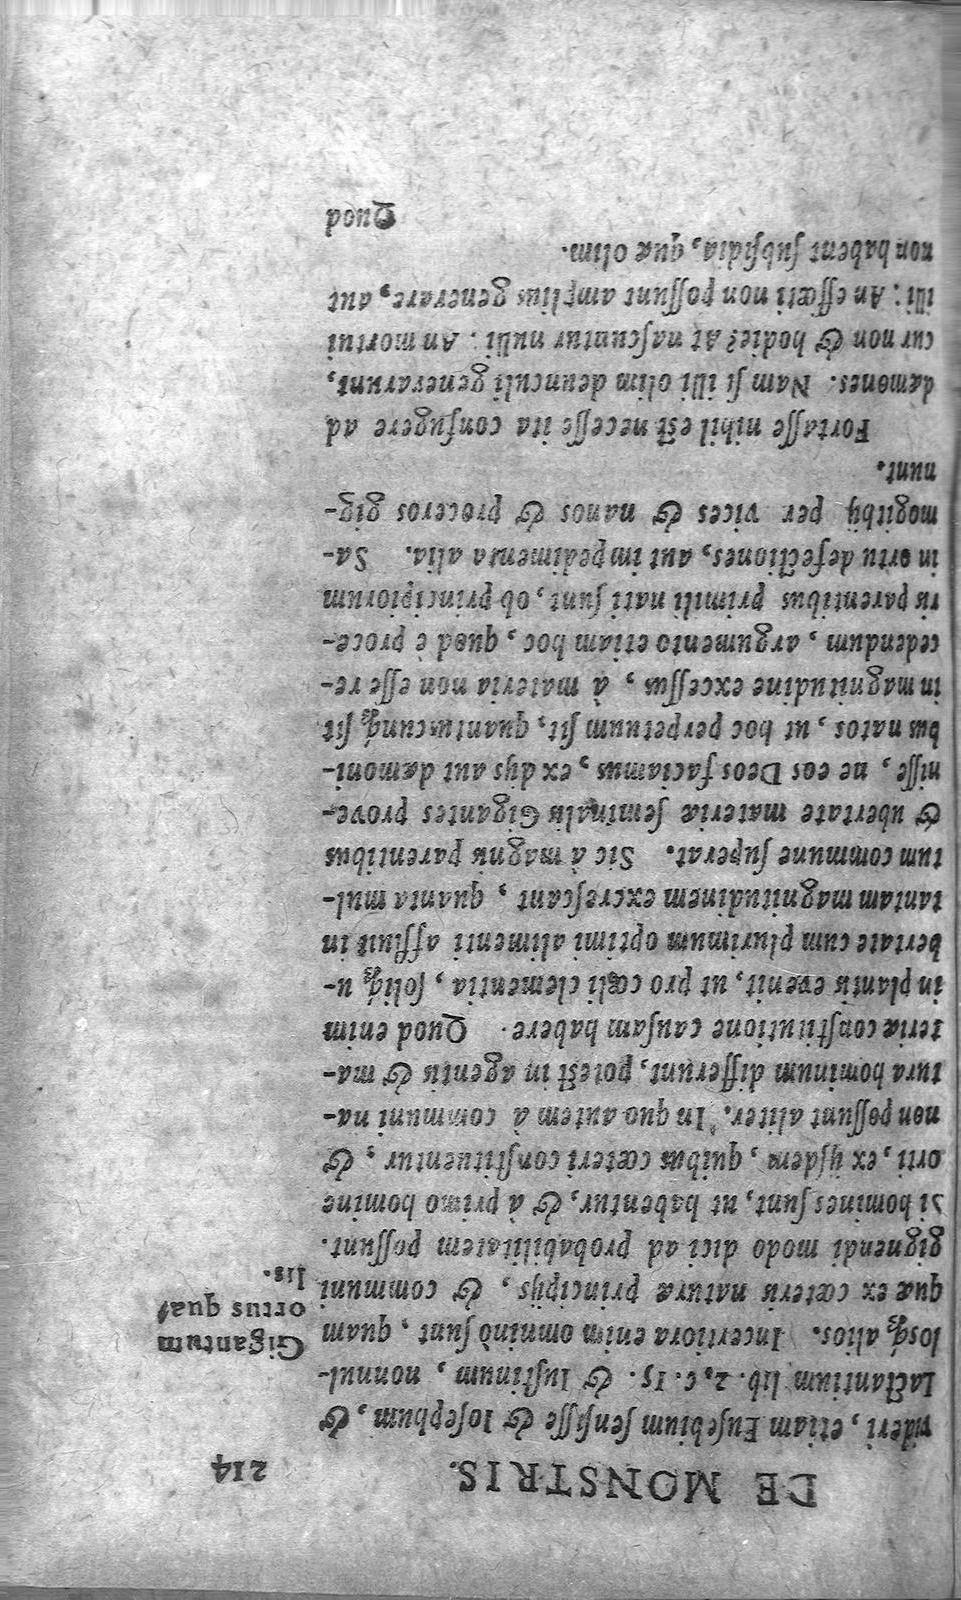 DE MONSTRIS.
214
videri, etiam Eusebium sensisse & Iosephum, &
Lactantium lib. 2, c. 15. & Iustinum, nonnul-
losq́ue alios. Incertiora enim omninò sunt, quam
quæ ex cœteris naturæ principijs, & communi
gignendi modo dici ad probabilitatem possunt.
Si homines sunt, ut habentur, & à primo homine
orti, ex ijsdem, quibus cœteri constituentur, &
non possunt aliter. In quo autem à communi na-
tura hominum differunt, potest in agentis & ma-
teriæ constitutione causam habere. Quod enim
in plantis evenit, ut pro cœli clementia, soliq́ue u-
bertate cum plurimum optimi alimenti affluit in
tantam magnitudinem excrescant, quanta mul-
tum commune superat. Sic à magnis parentibus
& ubertate materiæ seminalis Gigantes prove-
nisse, ne eos Deos faciamus, ex dijs aut dæmoni-
bus natos, ut hoc perpetuum sit, quantuscunq́ue sit
in magnitudine excessus, à materia non esse re-
cedendum, argumento etiam hoc, quod è proce-
ris parentibus primili nati sunt, ob principiorum
in ortu defectiones, aut impedimenta alia. Sa-
mogithij per vices & nanos & proceros gig-
nunt.
Fortasse nihil est necesse ita confugere ad
dæmones. Nam si illi olim deunculi generarunt,
cur non & hodie? At nascuntur nulli. An mortui
illi: An effœti non possunt amplius generare, aut
non habent subsidia, quæ olim.
Quod
Gigantum
ortus qua-
lis.